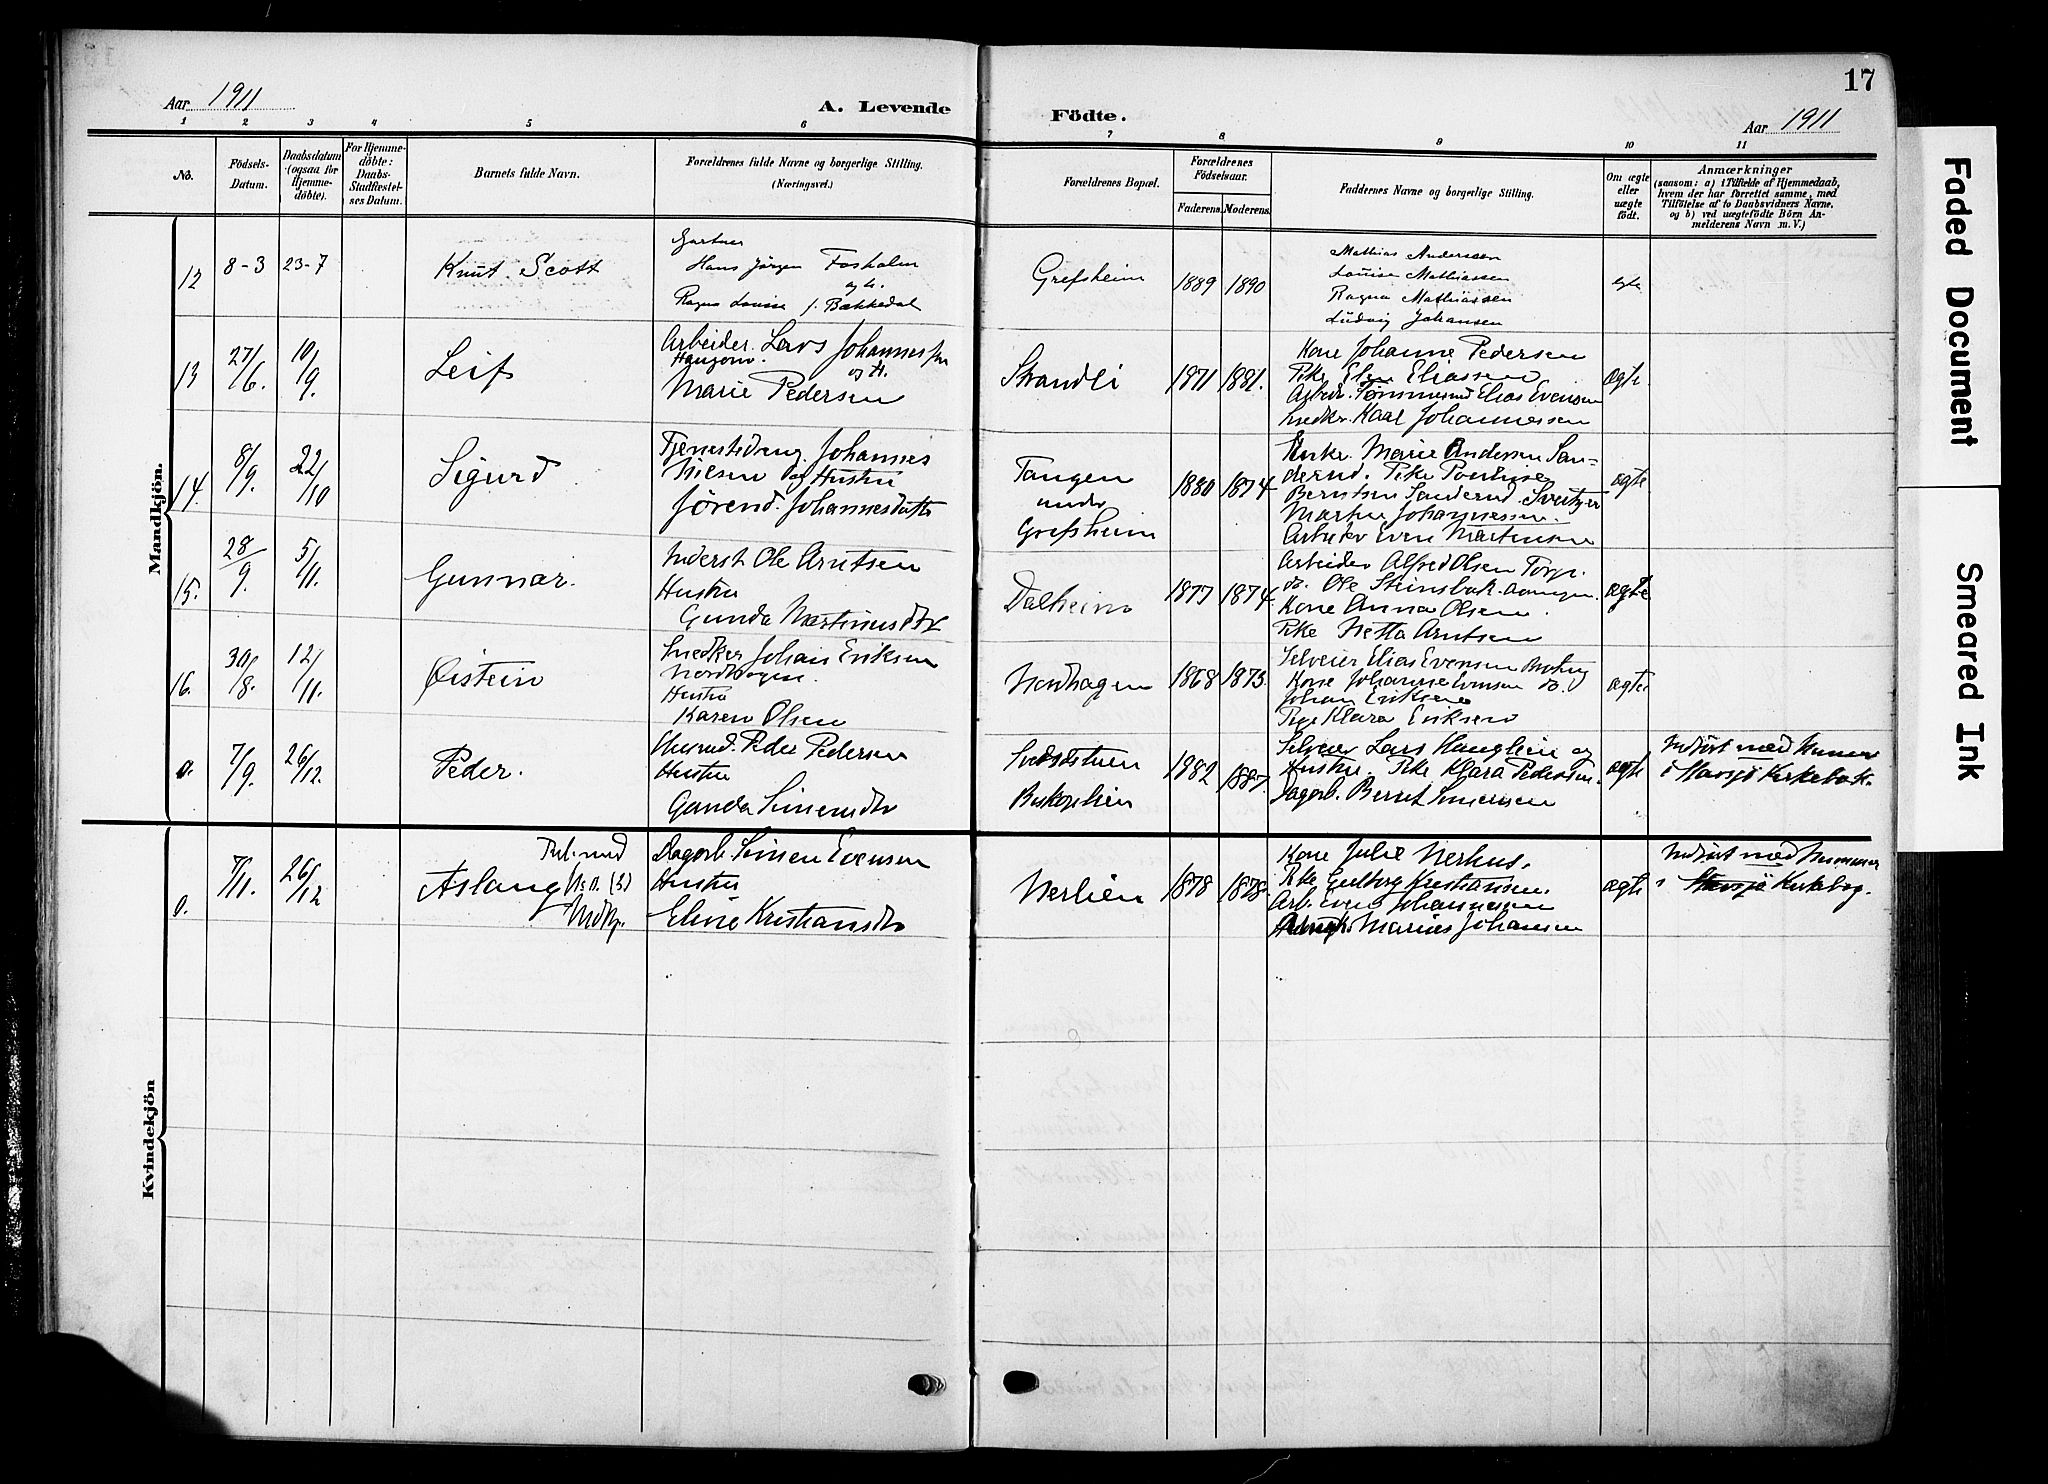 17
Aar 1911
A. Levende
Födte.
Aar 1911
1 2 3 4 5 6 7 8 9 10 11
No.
Födsels-
Datum.
Daabsdatum
(ogsaa for
Hjemme-
döbte).
For Hjemme-
döbte:
Daabs-
Stadfæstel-
ses Datum.
Barnets fulde Navn.
Forældrenes fulde Navne og borgerlige Stilling.
(Næringsvei.)
Forældrenes Bopæl.
Forældrenes
Födselsaar.
Faderens. Moderens.
Faddernes Navne og borgerlige Stilling.
Om ægte
eller
uægte
födt.
Anmærkninger
(saasom: a) i Tilfælde af Hjemmedaab,
hvem der har forrettet samme, med
Tilföielse af to Daabsvidners Navne.
og b) ved uægtefödte Börn An-
melderens Navn m. V.)
Mandkjön.
12 8-3 23-7
Knut Scott
Gartner
Hans Jörgen Fosholm
og h.
Ragna Louise f. Bækkedal
Grefsheim
1889 1890
Mathias Anderssen
Louise Mathiassen
Ragna Mathiassen
Ludvig Johansen
egte
13 27/6. 10/9.
Leif
Arbeider. Lars Johannessen
og h.
Marie Pedersen
Strandli
1871 1881.
Kone Johanne Pedersen
Pike Elen Eliassen
Elias Evensen
Snedker. Karl Johannessen
ægte
14. 8/9. 22/10
Sigurd
Tjenestedreng. Johannes
Nilsen og Hustru
Jørend. Johannesdatter
Tangen
under
Grefsheim
1880 1874
Marie Andersen San-
derud. Pike Pauline
Berntsen Sanderud. Sveitser
Martin Johannessen.
Arbeider Even Martinsen
ægte
15. 28/9. 5/11.
Gunnar.
Inderst Ole Arntsen
Hustru
Gunda Martinusdtr
Dalheim
1877 1874.
Arbeider Alfred Olsen Torp.
do. Ole Steinsbak.
Kone Anna Olsen.
Pike Netta Arntsen
ægte
16. 30/8. 12/11.
Øistein
Snedker Johan Eriksen
Nordhagen.
Hustru
Karen Olsen
Nordhagen
1868 1873.
Selveier Elias Evensen
Kone Johanne Evensen do.
Johan Eriksen
Pige Klara Eriksen
ægte
0. 7/9. 26/12.
Peder.
Husmd. Peder Pedersen
Hustru
Gunda Simensdtr
Biskoplien
1882 1887.
Selveier Lars Hauglien og
Hustru. Pike Klara Pedersen.
Dagarb. Bernt Simensen
ægte
Indført med Numer
i Stavsjø Kirkebok.
Kvindekjön
0. 7/11. 26/12
Aslaug
Dagarb. Simen Evensen
Hustru
Eline Kristiansdtr
Nerlien
1878 1878.
Kone Julie Nerhus.
Pike Gudborg Kristiansen.
Arb. Even Johannesen
Marius Johansen
ægte
Indført med Nummer
i Stavsjø Kirkebog.
Faded Document
Smeared Ink